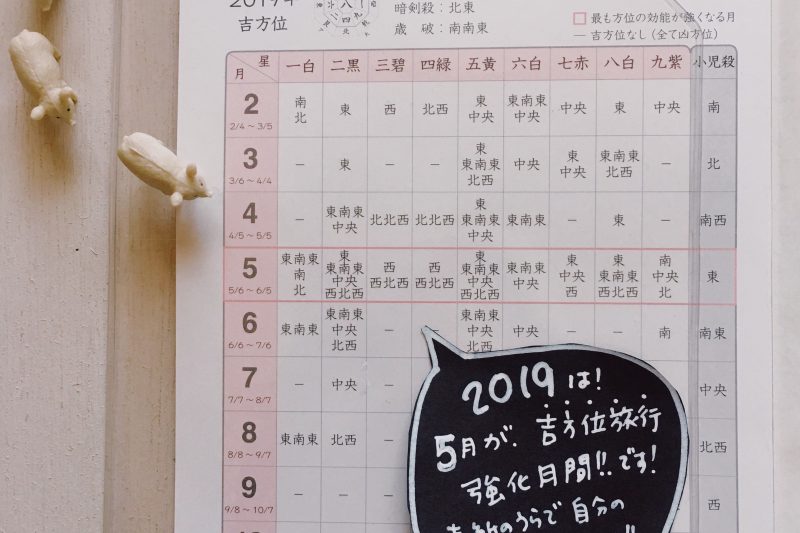 2019年
吉方位
暗剣殺：北東
歳 破：南南東
最も方位の効能が強くなる月
— 吉方位なし（全て凶方位）
月 星 一白 二黒 三碧 四緑 五黄 六白 七赤 八白 九紫 小児殺
2 2/4～3/5 南 北 東 西 北西 東 中央 東南東 中央 中央 東 中央 南
3 3/6～4/4 — 東 — — 東 東南東 北西 中央 東 中央 東南東 北西 — 北
4 4/5～5/5 — 東南東 中央 北北西 北北西 東 東南東 中央 東南東 — 東 — 南西
5 5/6～6/5 東南東 南 北 東 東南東 中央 西北西 西 西北西 西 西北西 東 東南東 中央 西北西 東南東 中央 東 中央 西 東 東南東 西北西 南 中央 北 東
6 6/6～7/6 東南東 東南東 中央 北西 — — 東南東 中央 北西 中央 — — 南 南東
7 7/7～8/7 — 中央 — 中央
8 8/8～9/7 東南東 北西 — 北西
9 9/8～10/7 — — — 西
2019は!
5月が、吉方位旅行
強化月間!!です!
うらで自分の